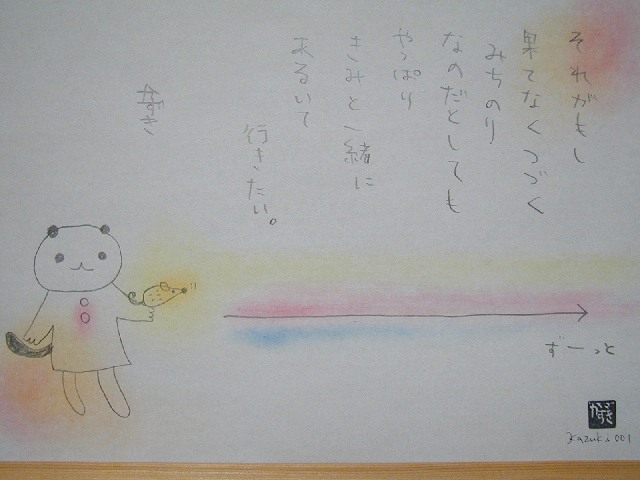 それがもし
果てなくつづく
みちのり
なのだとしても
やっぱり
きみと一緒に
あるいて
行きたい。
かずき
ずーっと
かずき
Kazuki001